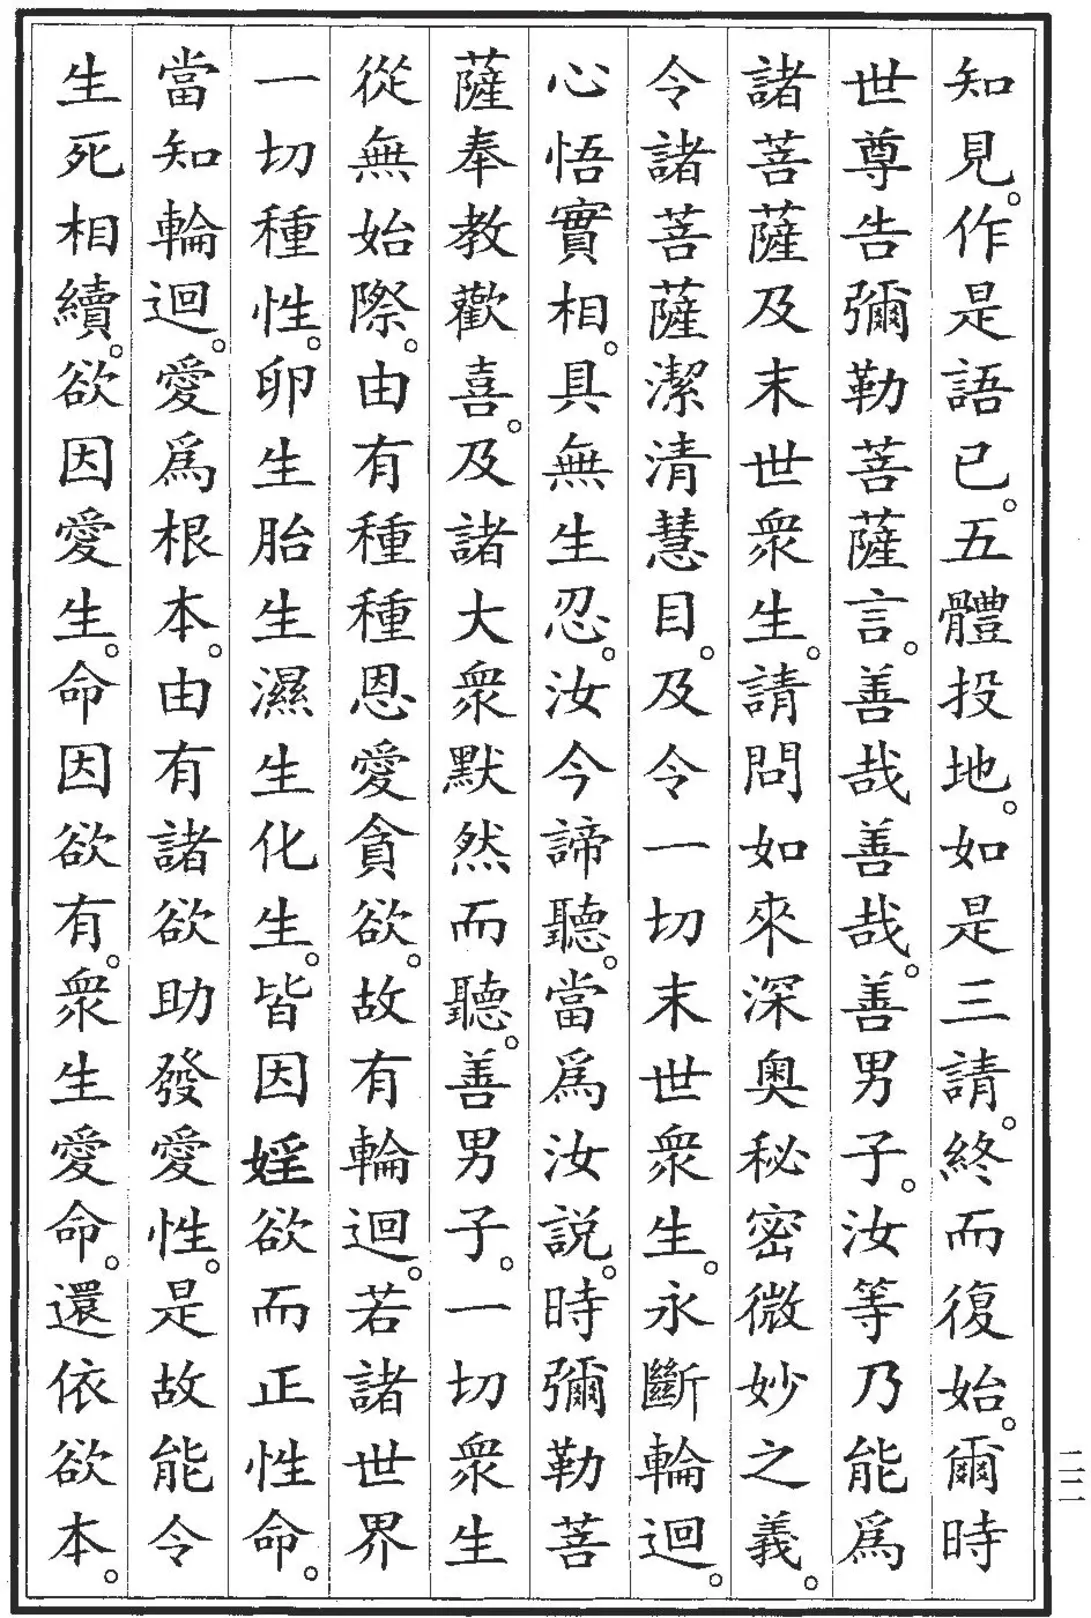 知見。作是語已。五體投地。如是三請。終而復始。爾時
世尊告彌勒菩薩言。善哉善哉。善男子。汝等乃能爲
諸菩薩及末世衆生。請問如來深奧秘密微妙之義。
令諸菩薩潔清慧目。及令一切末世衆生。永斷輪迴。
心悟實相。具無生忍。汝今諦聽。當爲汝説。時彌勒菩
薩奉教歡喜。及諸大衆默然而聽。善男子。一切衆生
從無始際。由有種種恩愛貪欲。故有輪迴。若諸世界
一切種性。卵生胎生濕生化生。皆因婬欲而正性命。
當知輪迴。愛爲根本。由有諸欲助發愛性。是故能令
生死相續。欲因愛生。命因欲有。衆生愛命。還依欲本。
二二